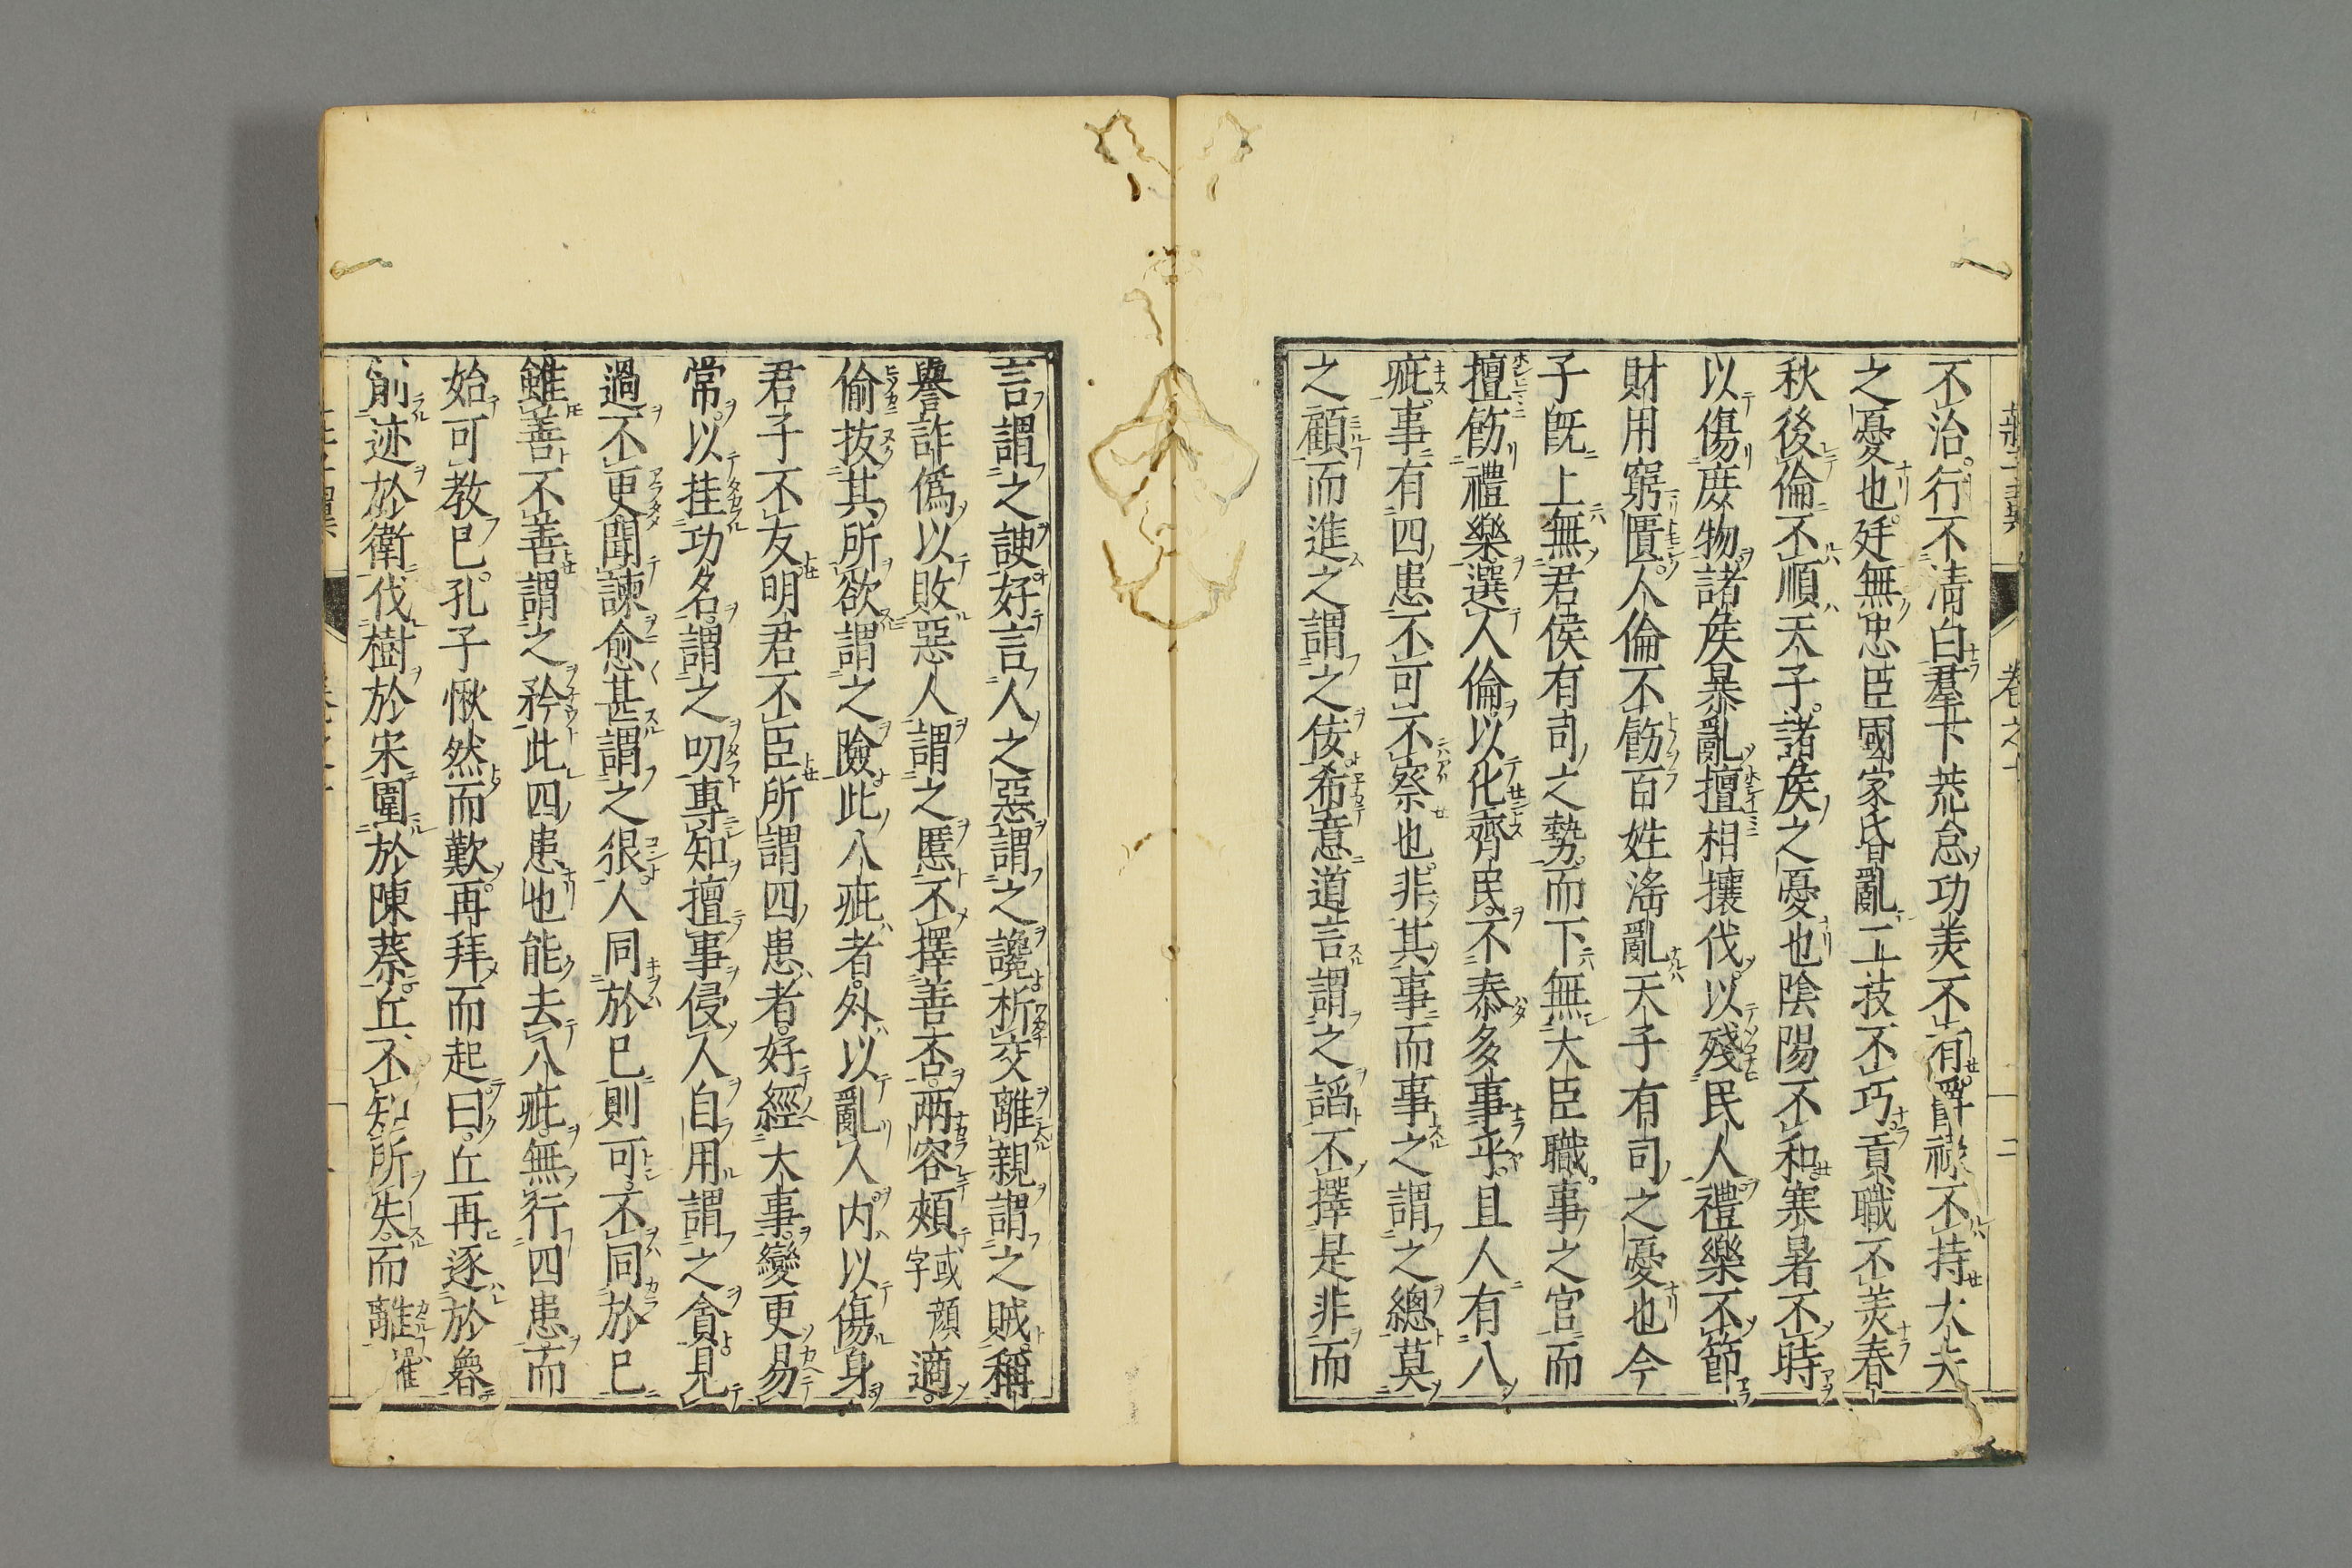 卷之十
不治行不清白羣下荒怠功美不有爵祿不持大夫
之憂也廷無忠臣國家昏亂工技不巧貢職不美春
秋後倫不順天子諸侯之憂也陰陽不和寒暑不時
以傷庶物諸侯暴亂擅相攘伐以殘民人禮樂不節
財用窮匱人倫不飭百姓淫亂天子有司之憂也今
子既上無君侯有司之勢而下無大臣職事之官而
擅飭禮樂選人倫以化齊民不泰多事乎且人有八
疵事有四患不可不察也非其事而事之謂之總莫
之顧而進之謂之佞希意道言謂之諂不擇是非而
言謂之諛好言人之惡謂之讒析交離親謂之賊稱
譽詐僞以敗惡人謂之慝不擇善否兩容頰或字顔適
偷拔其所欲謂之險此八疵者外以亂人内以傷身
君子不友明君不臣所謂四患者好經大事變更易
常以挂功名謂之叨專知擅事侵人自用謂之貪見
過不更聞諫愈甚謂之很人同於已則可不同於已
雖善不善謂之矜此四患也能去八疵無行四患而
始可教已孔子愀然而歎再拜而起曰丘再逐於魯
削迹於衛伐樹於宋圍於陳蔡丘不知所失而離罹